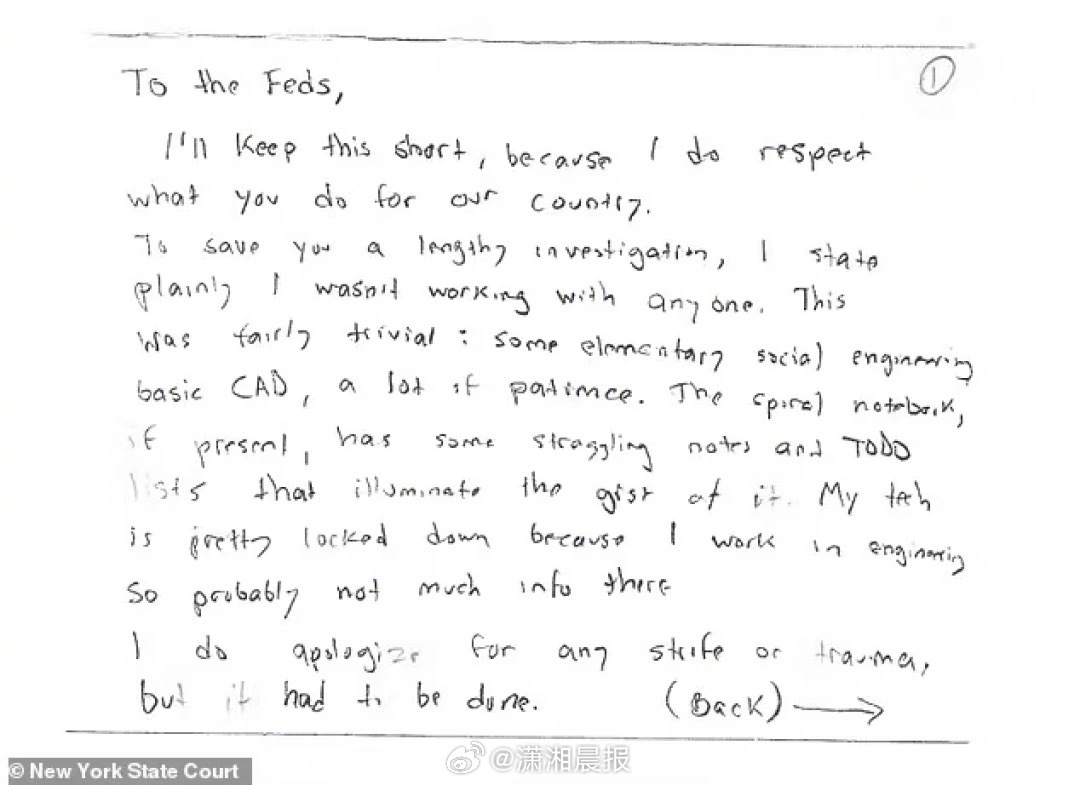 ①
To the Feds,
I'll keep this short, because I do respect
what you do for our country.
To save you a lengthy investigation, I state
plainly I wasn't working with anyone. This
was fairly trivial: some elementary social engineering
basic CAD, a lot of patience. The spiral notebook,
if present, has some straggling notes and TODO
lists that illuminate the gist of it. My tech
is pretty locked down because I work in engineering
so probably not much info there
I do apologize for any strife or trauma,
but it had to be done. (Back) →
@潇湘晨报
© New York State Court